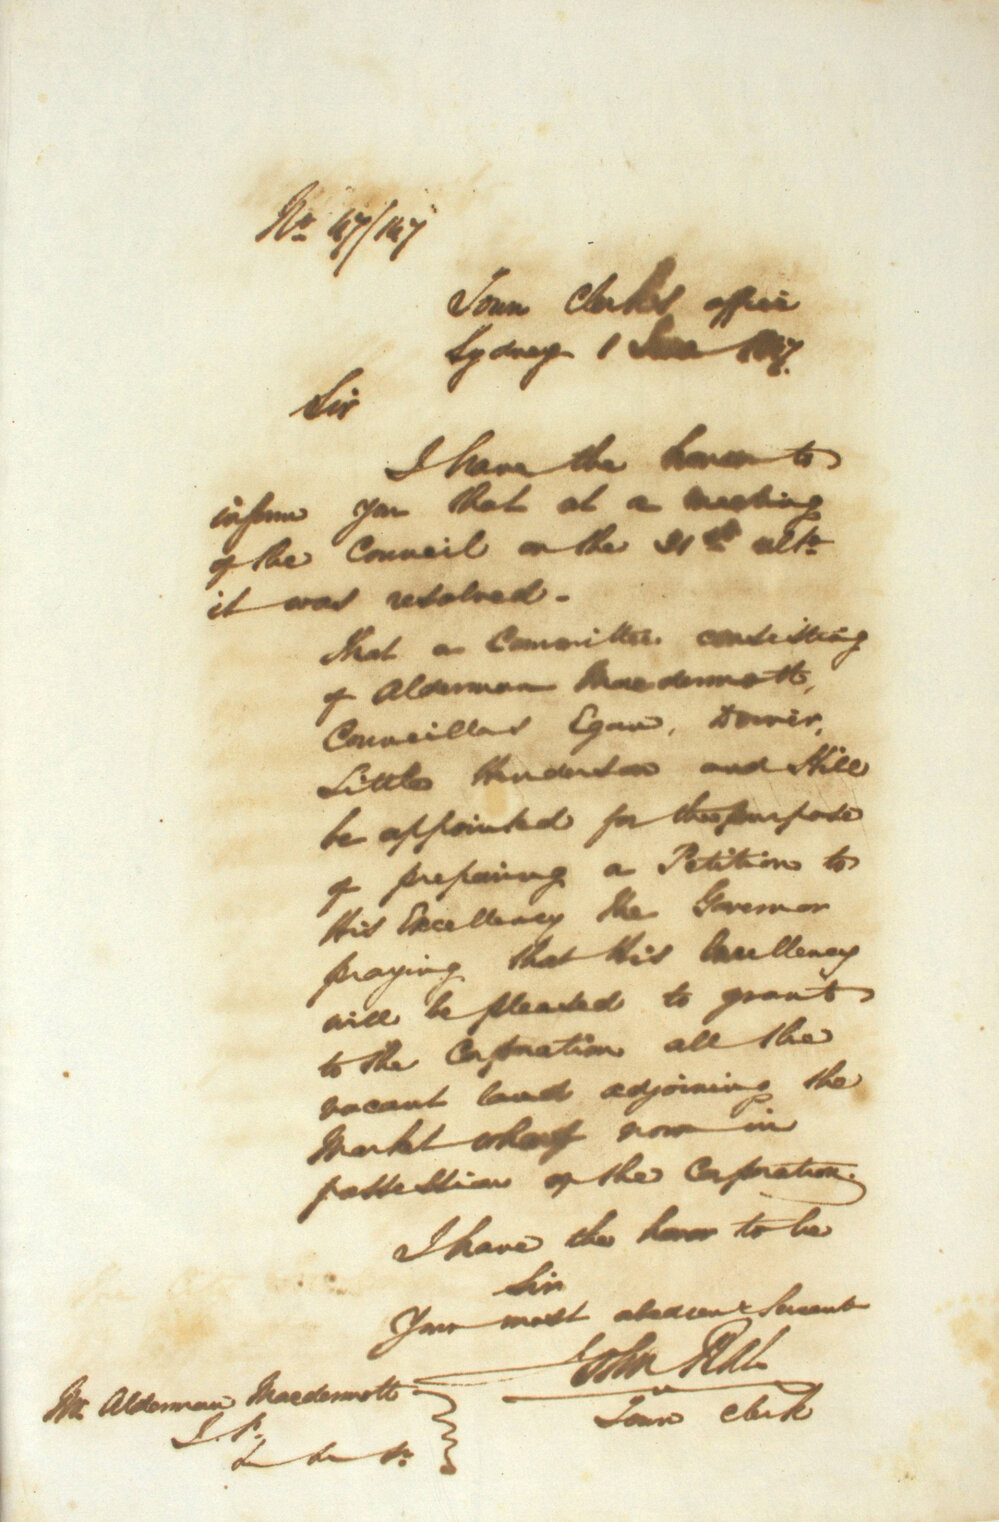 No. 47/147
Town Clerk's office
Sydney 1 June 1847.
Sir
I have the honor to
inform you that at a meeting
of the Council on the 31st ulto.
it was resolved -
That a Committee consisting
of Alderman Macdermott,
Councillors Egan, Downer,
Little Henderson and Hill
be appointed for the purpose
of preparing a Petition to
His Excellency the Governor
praying that His Excellency
will be pleased to grant
to the Corporation all the
vacant land adjoining the
Market wharf now in
possession of the Corporation.
I have the honor to be
Sir
Your most obedient Servant
John
Town Clerk
Mr. Alderman Macdermott
J. P.